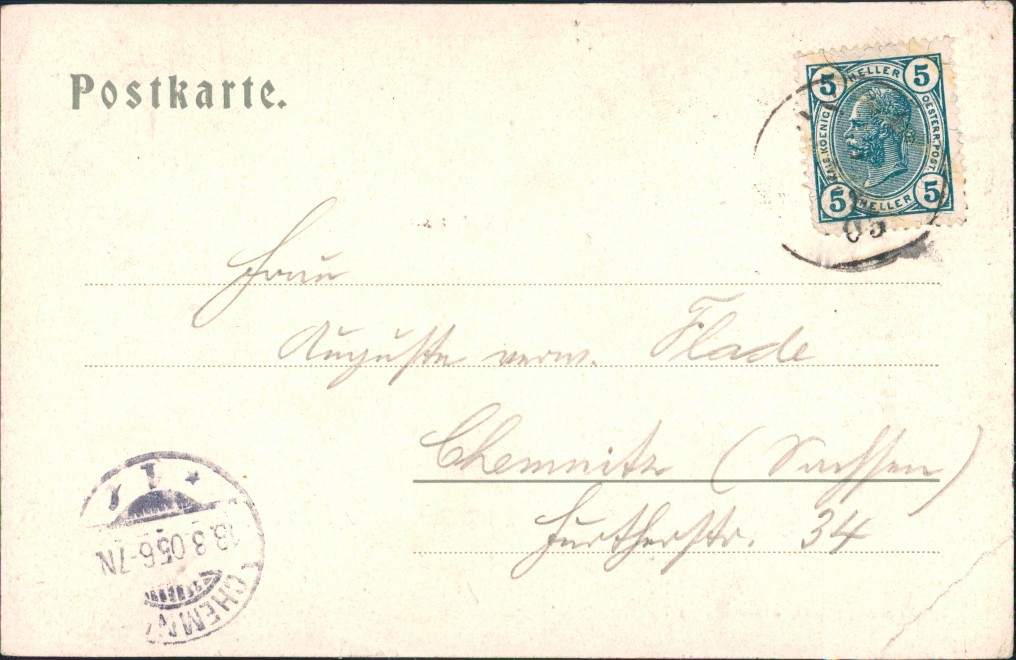 Postkarte.
5 HELLER 5
KAIS. KOENIG. OESTERR. POST.
5 HELLER 5
05
Frau
Auguste verw. Flade
Chemnitz (Sachsen)
Fürtherstr. 34
1
13.3.05 6-7N
CHEMN